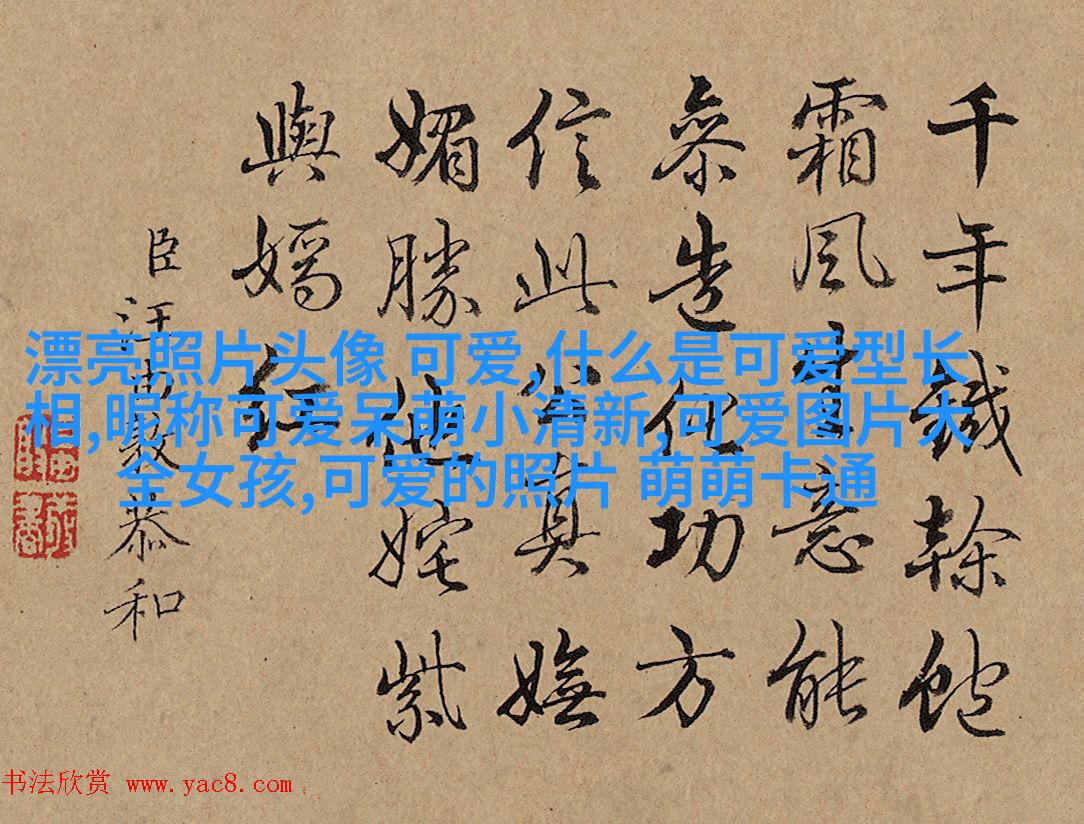 千年鐵幹飽
霜風意能
參造化功方
信此公真嫵
媚勝他姹紫
與嫣紅
臣汪由敦恭和
漂亮照片头像 可爱,什么是可爱型长
相,昵称可爱呆萌小清新,可爱图片大
全女孩,可爱的照片 萌萌卡通
书法欣赏 www.yac8.com